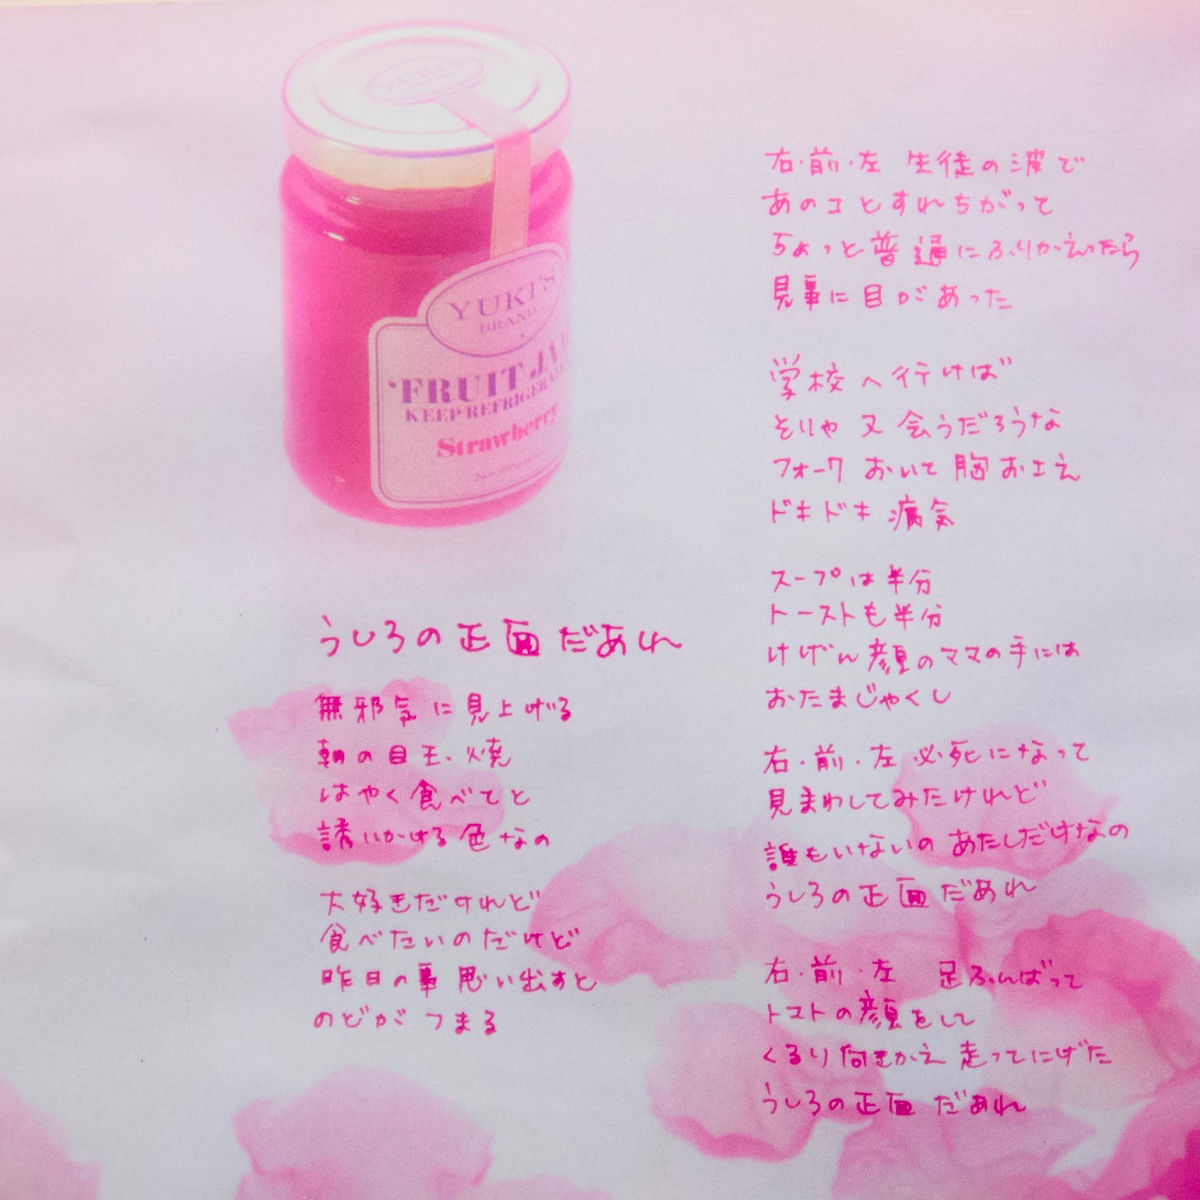 YUKI'S
BRAND
YUKI'S
BRAND
'FRUIT JA
KEEP REFRIGERA
Strawberry
うしろの正面だあれ
無邪気に見上げる
朝の目玉・焼
はやく食べてと
誘いかける色なの
大好きだけれど
食べたいのだけど
昨日の事思い出すと
のどがつまる
右・前・左 生徒の波で
あのコとすれちがって
ちょっと普通にふりかえったら
見事に目があった
学校へ行けば
そりゃ又会うだろうな
フォークおいて胸おさえ
ドキドキ病気
スープは半分
トーストも半分
けげん顔のママの手には
おたまじゃくし
右・前・左 必死になって
見まわしてみたけれど
誰もいないの あたしだけなの
うしろの正面だあれ
右・前・左 足ふんばって
トマトの顔をして
くるり向きかえ走ってにげた
うしろの正面だあれ